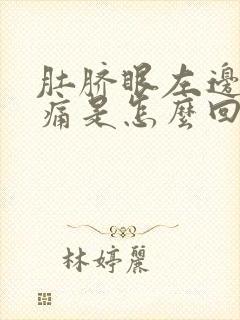 肚脐眼左邊
痛是怎麼回
林婷麗